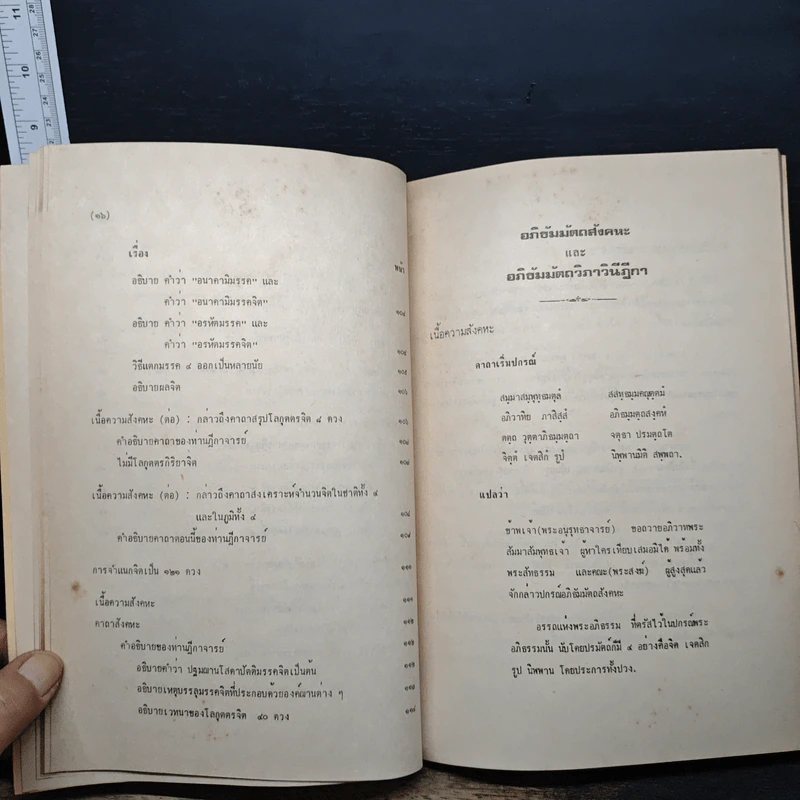 (๑๖)
เรื่อง
หน้า
อธิบาย คำว่า "อนาคามิมรรค" และ
คำว่า "อนาคามิมรรคจิต" ๑๐๔
อธิบาย คำว่า "อรหัตมรรค" และ
คำว่า "อรหัตมรรคจิต" ๑๐๔
วิธีแตกมรรค ๔ ออกเป็นหลายนัย ๑๐๕
อธิบายผลจิต ๑๐๖
เนื้อความสังคหะ (ต่อ) : กล่าวถึงคาถาสรุปโลกุตตรจิต ๘ ดวง ๑๐๖
คำอธิบายคาถาของท่านฎีกาจารย์ ๑๐๗
ไม่มีโลกุตตรกิริยาจิต ๑๐๗
เนื้อความสังคหะ (ต่อ) : กล่าวถึงคาถาสงเคราะห์จำนวนจิตในชาติทั้ง ๔
และในภูมิทั้ง ๔ ๑๐๘
คำอธิบายคาถาตอนนี้ของท่านฎีกาจารย์ ๑๐๘
การจำแนกจิตเป็น ๑๒๑ ดวง ๑๑๑
เนื้อความสังคหะ ๑๑๑
คาถาสังคหะ ๑๑๒
คำอธิบายของท่านฎีกาจารย์ ๑๑๒
อธิบายคำว่า ปฐมฌานโสดาปัตติมรรคจิตเป็นต้น ๑๑๒
อธิบายเหตุบรรลุมรรคจิตที่ประกอบด้วยองค์ฌานต่าง ๆ ๑๑๓
อธิบายเวทนาของโลกุตตรจิต ๔๐ ดวง ๑๑๘
อภิธัมมัตถสังคหะ
และ
อภิธัมมัตถวิภาวินีฎีกา
เนื้อความสังคหะ
คาถาเริ่มปกรณ์
สมฺมาสมฺพุทฺธมตุลํ สสทฺธมฺมคณุตฺตมํ
อภิวาทิย ภาสิสฺสํ อภิธมฺมตฺถสงฺคหํ
ตตฺถ วุตฺตาภิธมฺมตฺถา จตุธา ปรมตฺถโต
จิตฺตํ เจตสิกํ รูปํ นิพฺพานมิติ สพฺพถา.
แปลว่า
ข้าพเจ้า(พระอนุรุทธาจารย์) ขอถวายอภิวาทพระ
สัมมาสัมพุทธเจ้า ผู้หาใครเทียบเสมอมิได้ พร้อมทั้ง
พระสัทธรรม และคณะ(พระสงฆ์) ผู้สูงสุดแล้ว
จักกล่าวปกรณ์อภิธัมมัตถสังคหะ
อรรถแห่งพระอภิธรรม ที่ตรัสไว้ในปกรณ์พระ
อภิธรรมนั้น นับโดยปรมัตถ์ก็มี ๔ อย่างคือจิต เจตสิก
รูป นิพพาน โดยประการทั้งปวง.